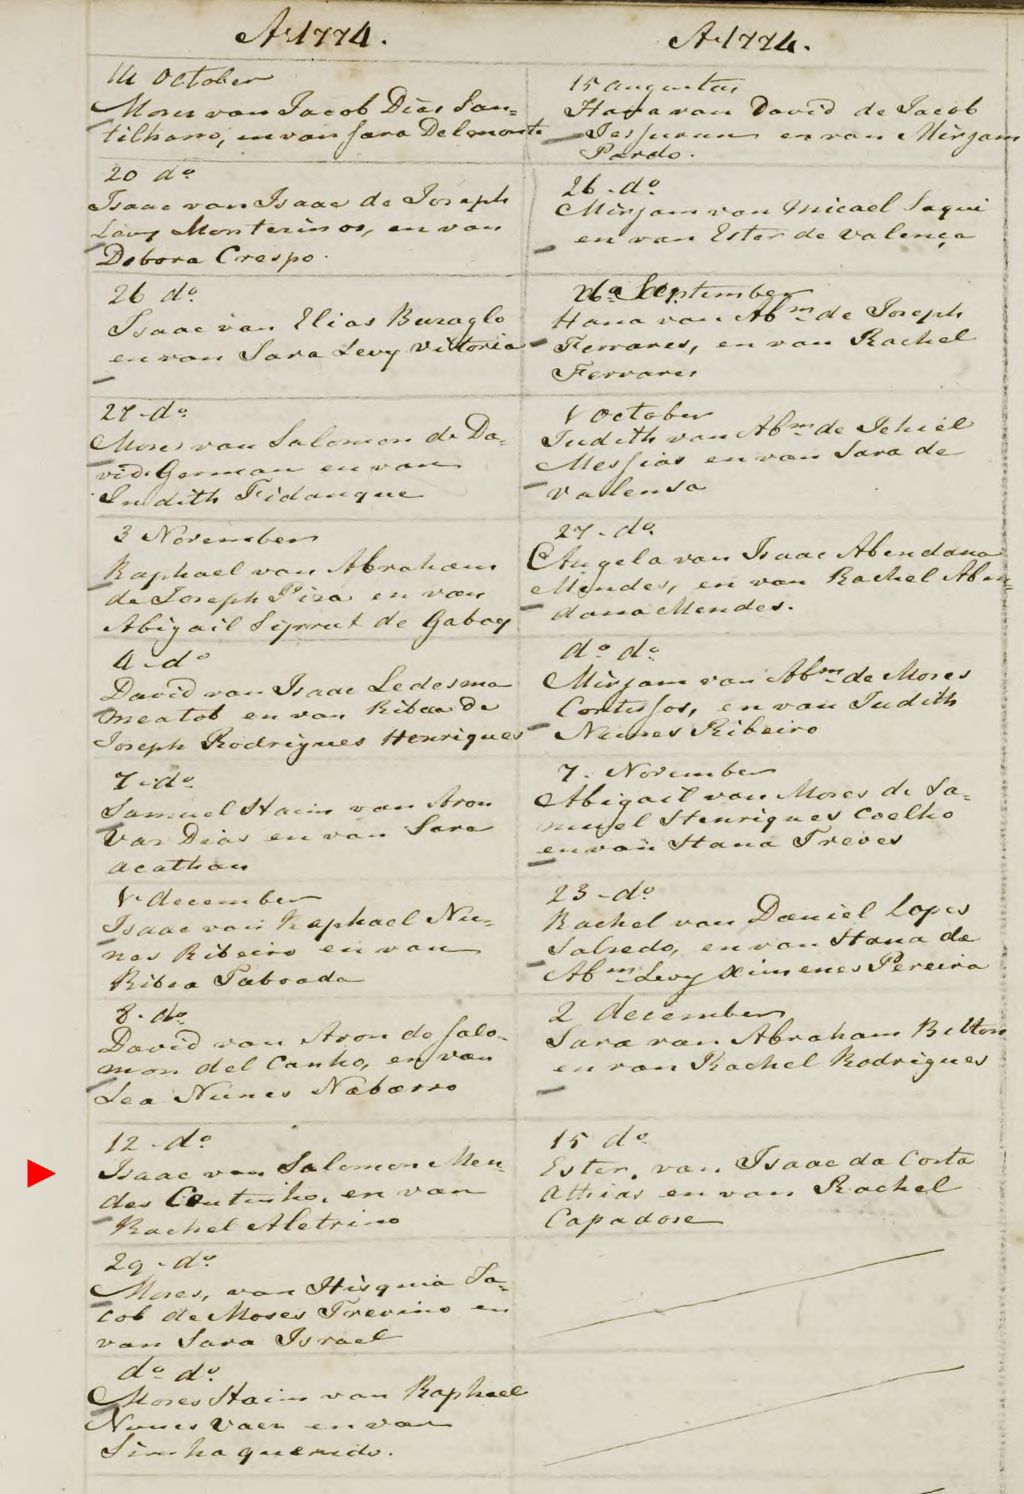 Aº 1774.
14 October
Moses van Jacob Dias San=
tilhano, en van Sara Delmonte
20 dº
Isaac van Isaac de Joseph
Levy Monterinos, en van
Debora Crespo.
26 dº
Isaac van Elias Buzaglo
en van Sara Levy Vittoria
27 - dº
Moses van Salomon de Da=
vid German en van
Judith Fidanque
3 November
Raphael van Abraham
de Joseph Piza en van
Abigail Siprut de Gabay
4 - dº
David van Isaac Ledesma
Meatob en van Ribca de
Joseph Rodrigues Henriques
7 - dº
Samuel Haim van Aron
Vaz Dias en van Sara
acathan
1 december
Isaac van Raphael Nu=
nes Ribeiro en van
Ribca Taboada
8 - dº
David van Aron de Salo=
mon del Canho, en van
Lea Nunes Nabarro
12 - dº
Isaac van Salomon Men=
des Coutinho, en van
Rachel Aletrino
29 - dº
Moses, van Hisquia Ja=
cob de Moses Trevino en
van Sara Israel
dº dº
Moses Haim van Raphael
Nunes Vaen en van
Simha querido.
Aº 1774.
15 augustus
Hana van David de Jacob
Jessurun en van Mirjam
Pardo.
26 - dº
Mirjam van Micael Saqui
en van Ester de Valença
September
Hana van Abm de Joseph
Ferrares, en van Rachel
Ferrares
1 October
Judith van Abm de Jehiel
Messias en van Sara de
Valensa
27 - dº
Angela van Isaac Abendana
Mendes, en van Rachel Aben=
dana Mendes.
dº dº
Mirjam van Abm de Moses
Contissos, en van Judith
Nunes Ribeiro
7. November
Abigail van Moses de Sa=
muel Henriques Coelho
en van Hana Treves
23 - dº
Rachel van Daniel Lopes
Salzedo, en van Hana de
Abm Levy Ximenes Pereira
2 december
Sara van Abraham Bitton
en van Rachel Rodrigues
15 dº
Ester, van Isaac da Costa
Athias en van Rachel
Capadose